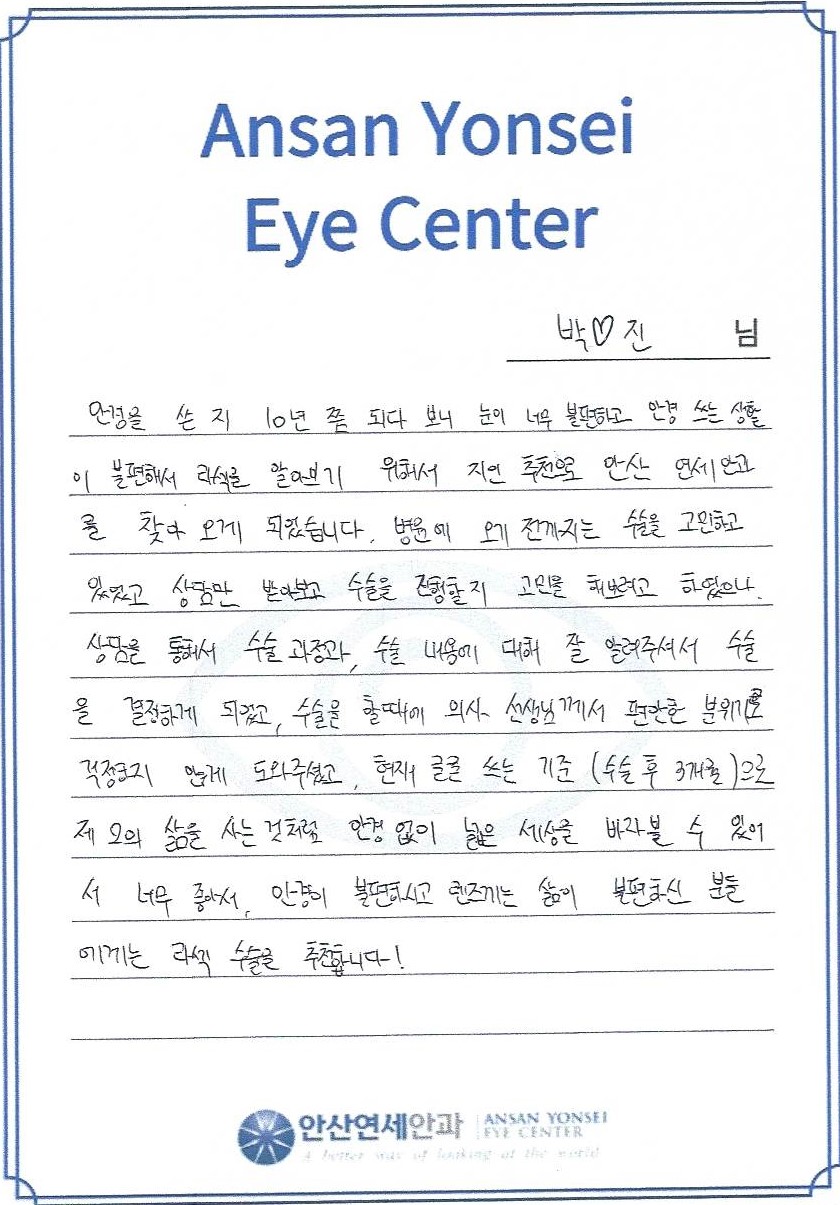 Ansan Yonsei
Eye Center
박♡진 님
안경을 쓴 지 10년 쯤 되다 보니 눈이 너무 불편하고 안경 쓰는 생활
이 불편해서 라섹을 알아보기 위해서 지인 추천으로 안산 연세안과
를 찾아 오게 되었습니다. 병원에 오기 전까지는 수술을 고민하고
있었고 상담만 받아보고 수술을 진행할지 고민을 해보려고 하였으나.
상담을 통해서 수술 과정과, 수술 내용에 대해 잘 알려주셔서 수술
을 결정하게 되었고, 수술을 할때에 의사 선생님께서 편안한 분위기로
걱정되지 않게 도와주셨고, 현재 글을 쓰는 기준 (수술 후 3개월)으로
제 2의 삶을 사는 것처럼 안경 없이 넓은 세상을 바라볼 수 있어
서 너무 좋아서, 안경이 불편하시고 렌즈끼는 삶이 불편하신 분들
에게는 라섹 수술을 추천합니다!
안산연세안과 ANSAN YONSEI
EYE CENTER
A better way of looking at the world